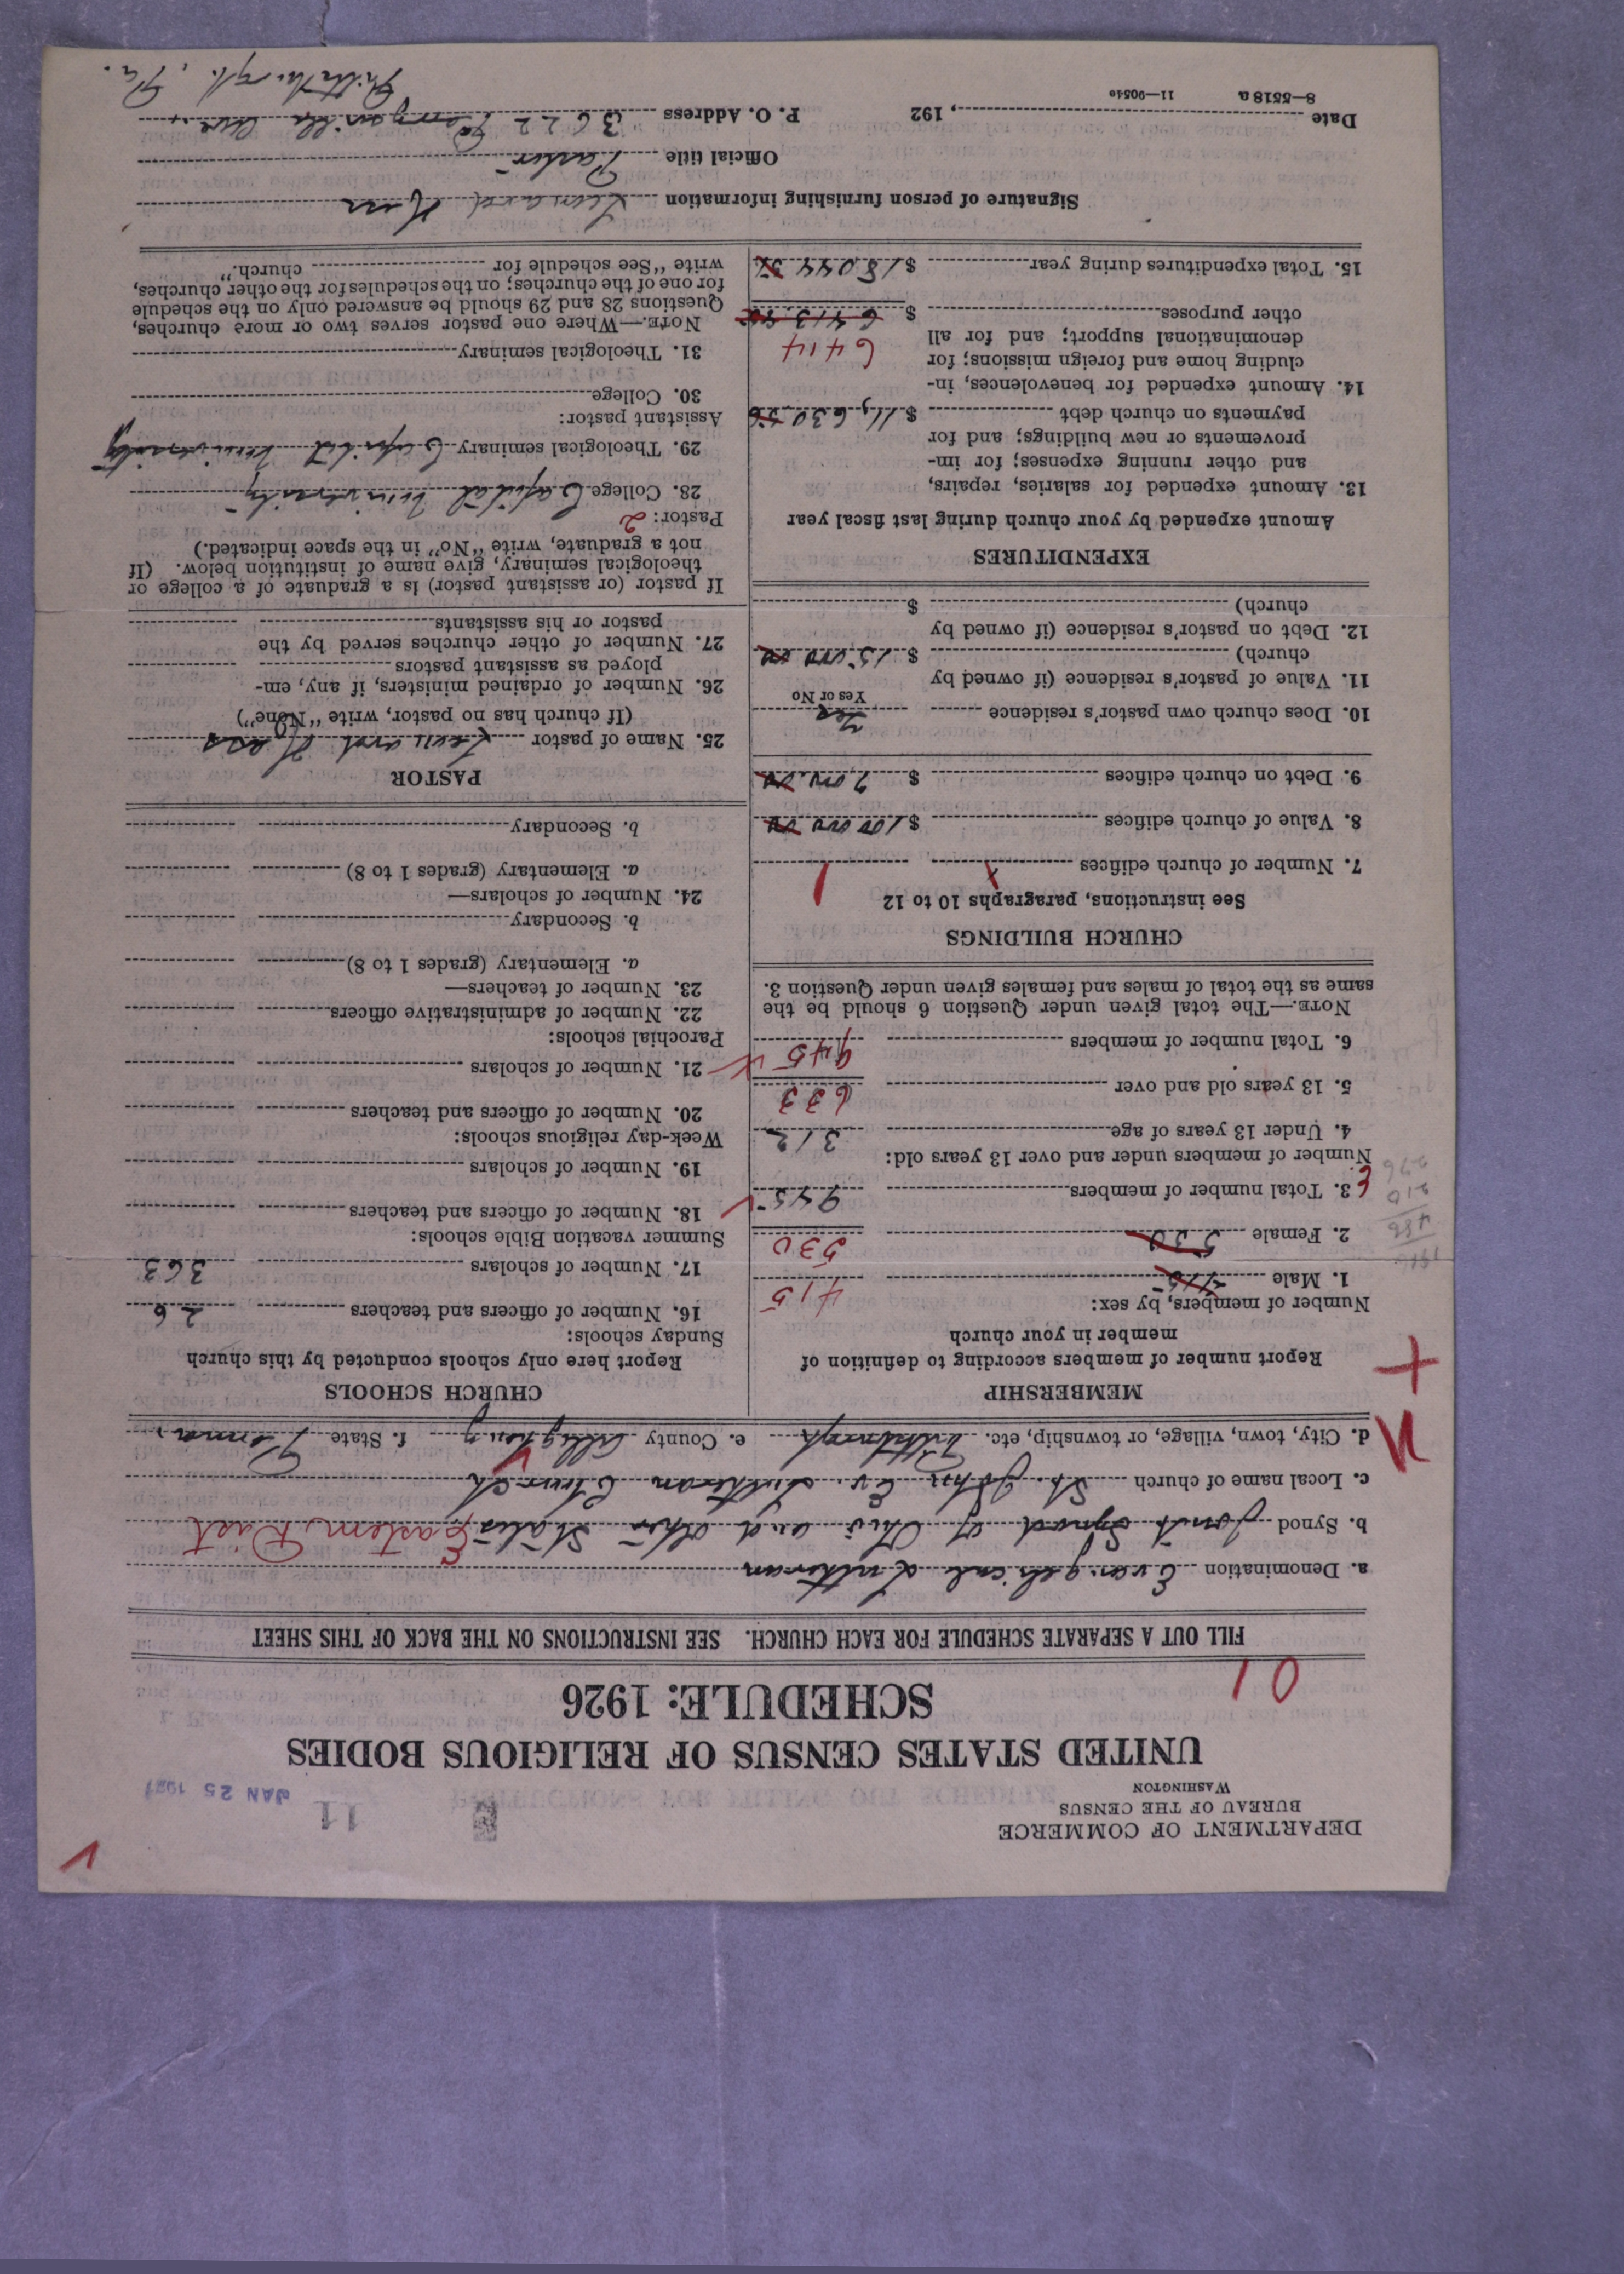 DEPARTMENT OF COMMERCE
BUREAU OF THE CENSUS
WASHINGTON
11
JAN 25 1927
UNITED STATES CENSUS OF RELIGIOUS BODIES
SCHEDULE: 1926
01
FILL OUT A SEPARATE SCHEDULE FOR EACH CHURCH. SEE INSTRUCTIONS ON THE BACK OF THIS SHEET
a. Denomination Evangelical Lutheran
b. Synod Joint Synod of Ohio and other States Eastern Dist
c. Local name of church St. John Ev. Lutheran Church
d. City, town, village, or township, etc. Pittsburgh e. County Allegheny f. State Penna.
MEMBERSHIP
Report number of members according to definition of
member in your church
Number of members, by sex:
1. Male 415 415
2. Female 530 530
3. Total number of members 945
Number of members under and over 13 years old:
4. Under 13 years of age 312
5. 13 years old and over 633
6. Total number of members 945
NOTE.—The total given under Question 6 should be the
same as the total of males and females given under Question 3.
CHURCH BUILDINGS
See instructions, paragraphs 10 to 12
7. Number of church edifices 1 1
8. Value of church edifices $ 100 000 00
9. Debt on church edifices $ 7,000.00
10. Does church own pastor's residence Yes
Yes or No
11. Value of pastor's residence (if owned by
church) $ 15,000 00
12. Debt on pastor's residence (if owned by
church) $
EXPENDITURES
Amount expended by your church during last fiscal year
13. Amount expended for salaries, repairs,
and other running expenses; for im-
provements or new buildings; and for
payments on church debt $ 11,630.56
14. Amount expended for benevolences, in-
cluding home and foreign missions; for
denominational support; and for all
other purposes $ 6413 6414
15. Total expenditures during year $ 18,044
CHURCH SCHOOLS
Report here only schools conducted by this church
Sunday schools:
16. Number of officers and teachers 26
17. Number of scholars 363
Summer vacation Bible schools:
18. Number of officers and teachers
19. Number of scholars
Week-day religious schools:
20. Number of officers and teachers
21. Number of scholars
Parochial schools:
22. Number of administrative officers
23. Number of teachers—
a. Elementary (grades 1 to 8)
b. Secondary
24. Number of scholars—
a. Elementary (grades 1 to 8)
b. Secondary
PASTOR
25. Name of pastor Leonard Hess
(If church has no pastor, write "None")
26. Number of ordained ministers, if any, em-
ployed as assistant pastors
27. Number of other churches served by the
pastor or his assistants
If pastor (or assistant pastor) is a graduate of a college or
theological seminary, give name of institution below. (If
not a graduate, write "No" in the space indicated.)
Pastor: 2
28. College Capital University
29. Theological seminary Capital University
Assistant pastor:
30. College
31. Theological seminary
NOTE.—Where one pastor serves two or more churches,
Questions 28 and 29 should be answered only on the schedule
for one of the churches; on the schedules for the other churches,
write "See schedule for church."
Signature of person furnishing information Leonard Hess
Official title Pastor
Date , 192 P. O. Address 3622 Perrysville Ave.,
Pittsburgh, Pa.
8—5518 a 11—9054c